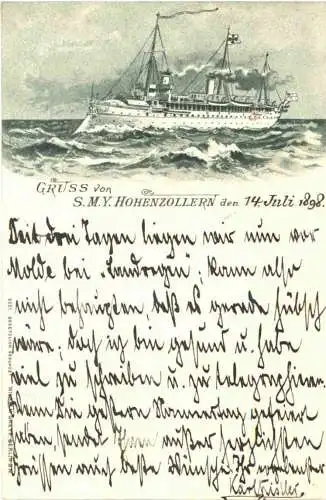 GRUSS von
S.M.Y. HOHENZOLLERN den 14 Juli 1898.
Seit drei Tagen liegen wir nun vor
Molde bei „Landregen", kann also
nicht behaupten, daß es gerade hübsch
wäre; doch ich bin gesund u. habe
viel zu schreiben u. zu telegraphieren.
Wenn Sie gestern Namenstag gefeiert
haben, sendet Ihnen außer herzlichsten
Grüssen noch beste Wünsche Ihr ergebenster